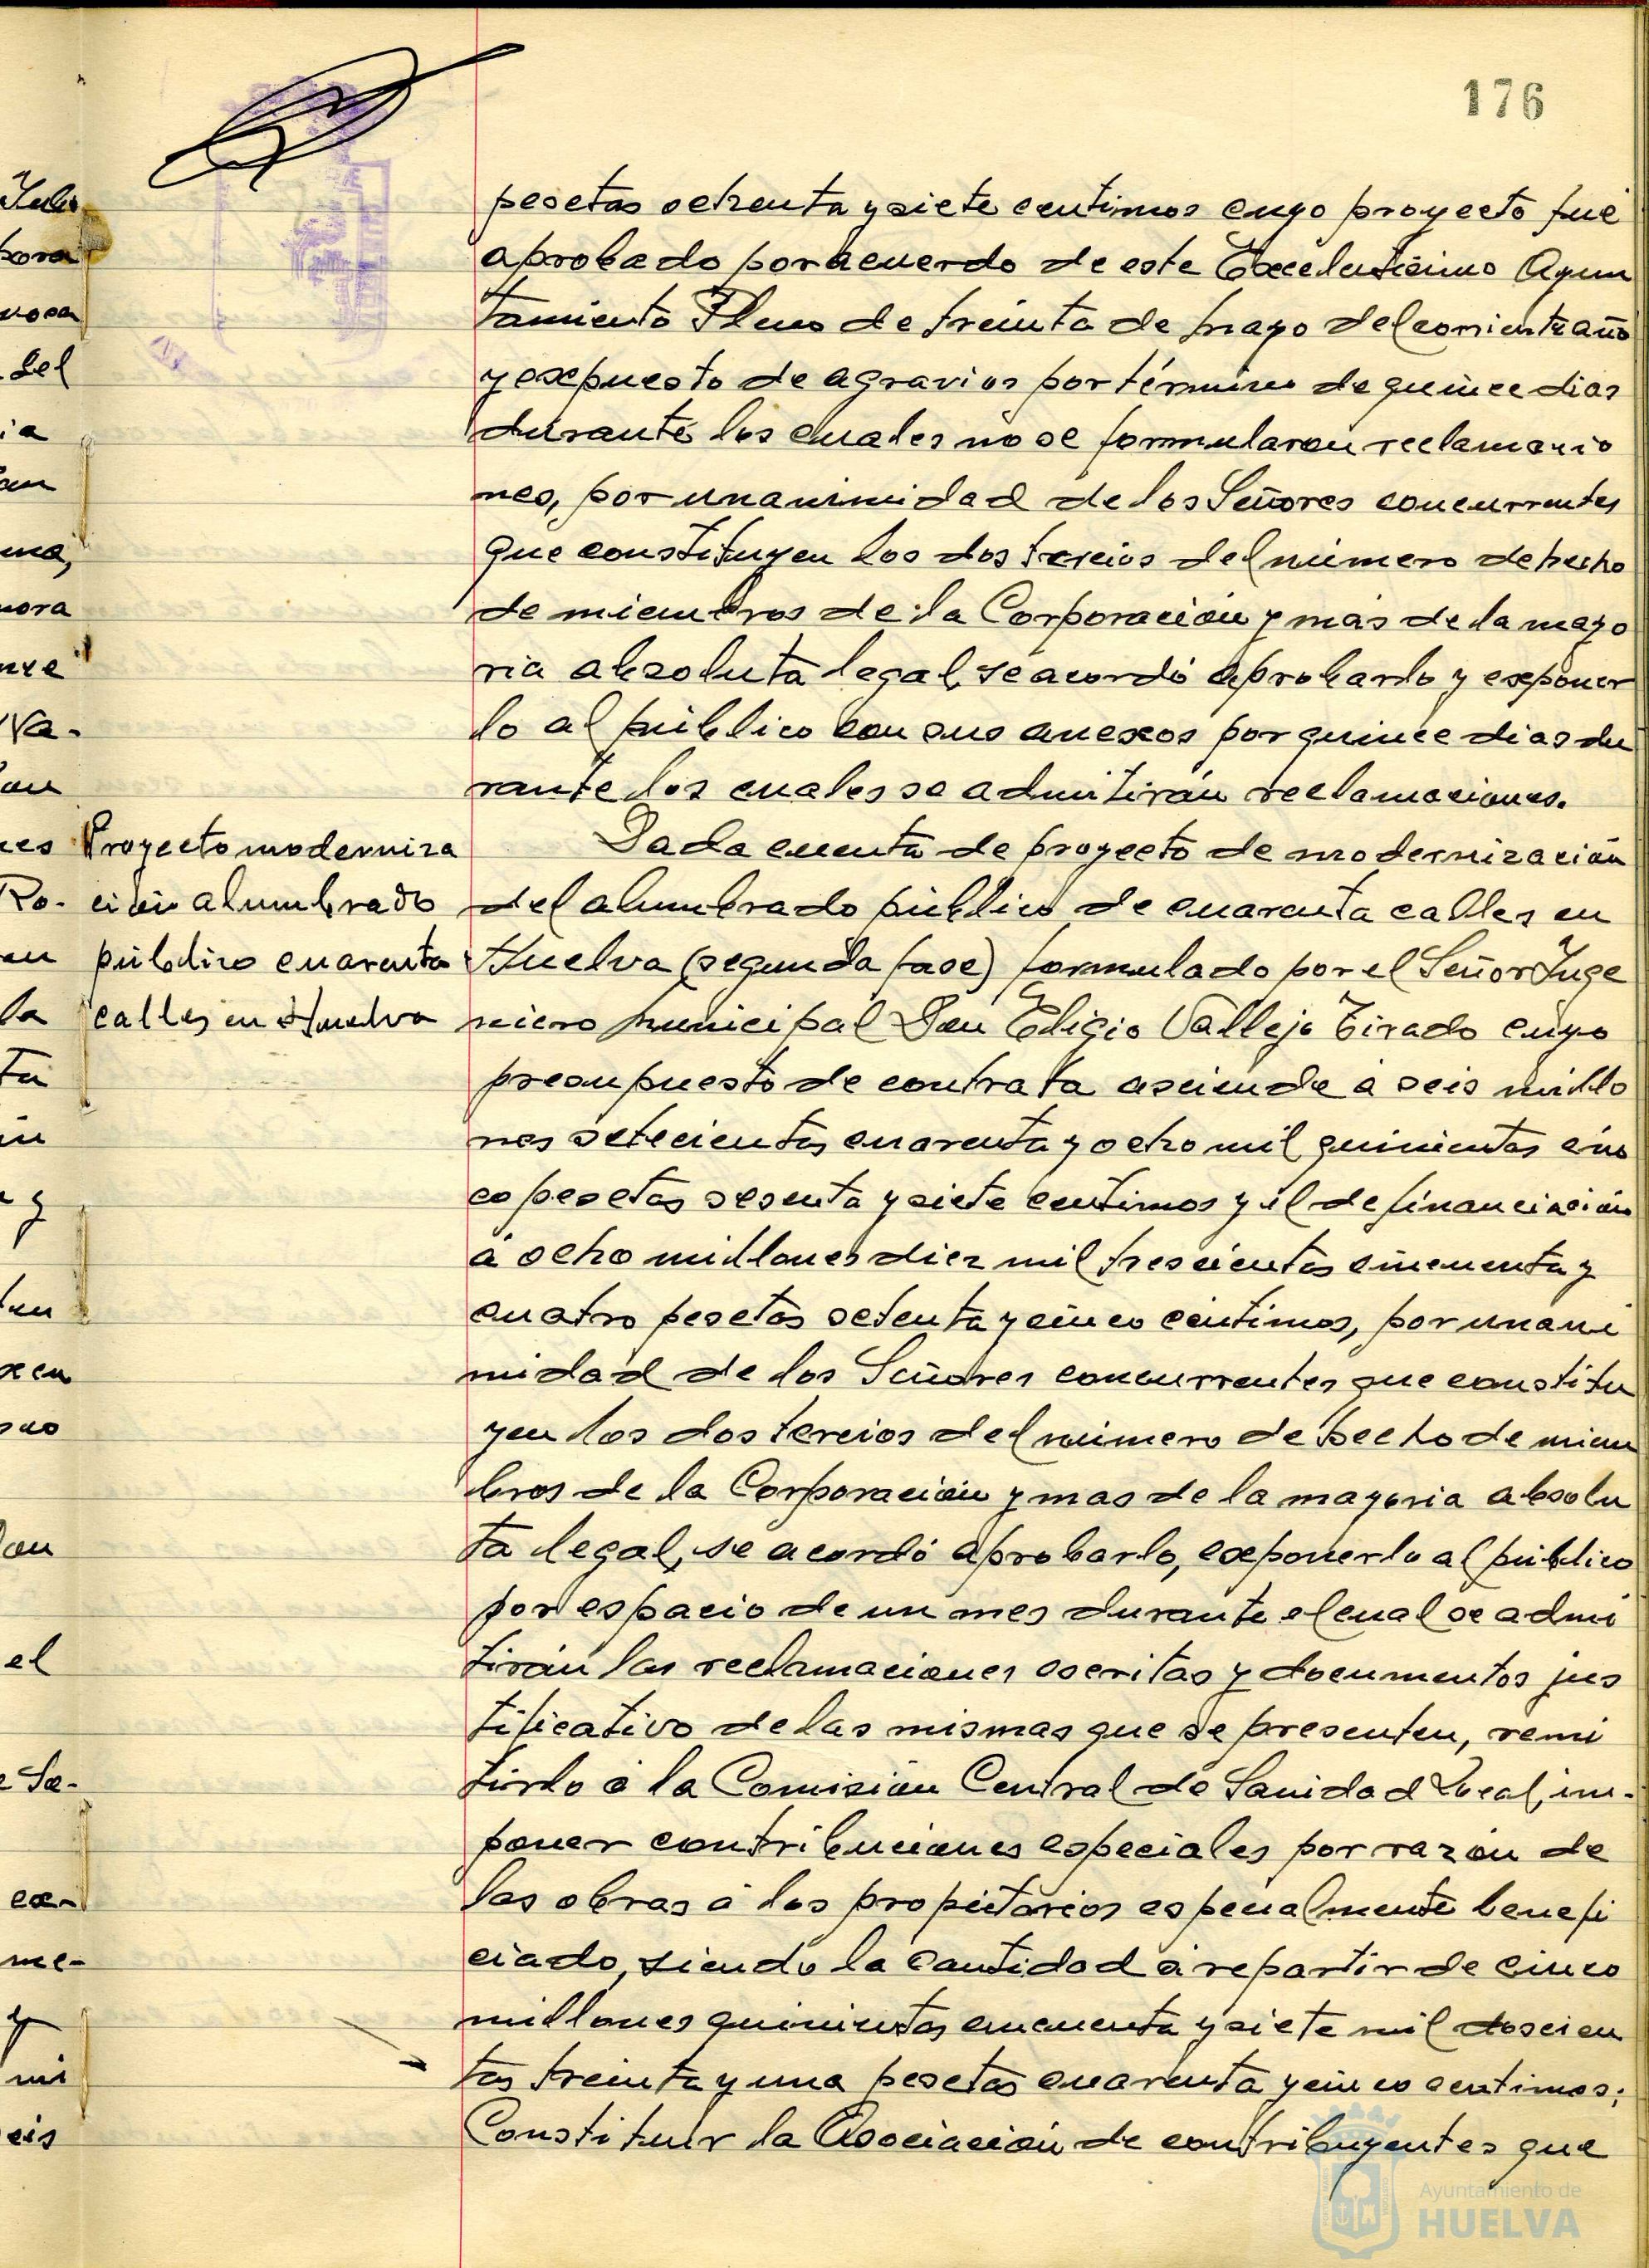 176
pesetas ochenta y siete centimos cuyo proyecto fué
aprobado por acuerdo de este Excelentísimo Ayun
tamiento Pleno de treinta de mayo del corriente año
y expuesto de agravios por término de quince dias
durante los cuales no se formularon reclamacio
nes, por unanimidad de los Señores concurrentes
que constituyen los dos tercios del número de hecho
de miembros de la Corporación y más de la mayo
ria absoluta legal, se acordó aprobarlo y exponer
lo al público con sus anexos por quince dias du
rante los cuales se admitirán reclamaciones.
Proyecto moderniza
ción alumbrado
público cuarenta
calles en Huelva
Dada cuenta de proyecto de modernización
del alumbrado público de cuarenta calles en
Huelva (segunda fase) formulado por el Señor Inge
niero Municipal Don Eligio Vallejo Tirado cuyo
presupuesto de contrata asciende a seis millo
nes setecientas cuarenta y ocho mil quinientas cin
co pesetas sesenta y siete centimos y el de financiación
a ocho millones diez mil trescientas cincuenta y
cuatro pesetas setenta y cinco centimos, por unani
midad de los Señores concurrentes que constitu
yen los dos tercios del número de hecho de miem
bros de la Corporación y mas de la mayoria absolu
ta legal, se acordó aprobarlo, exponerlo al público
por espacio de un mes durante el cual se admi
tirán las reclamaciones escritas y documentos jus
tificativo de las mismas que se presenten, remi
tirlo a la Comisión Central de Sanidad Local, im-
poner contribuciones especiales por razón de
las obras a los propietarios especialmente benefi
ciado, siendo la cantidad a repartir de cinco
millones quinientas cincuenta y siete mil doscien
tas treinta y una pesetas cuarenta y cinco centimos;
Constituir la Asociación de contribuyentes que
Ayuntamiento de
HUELVA